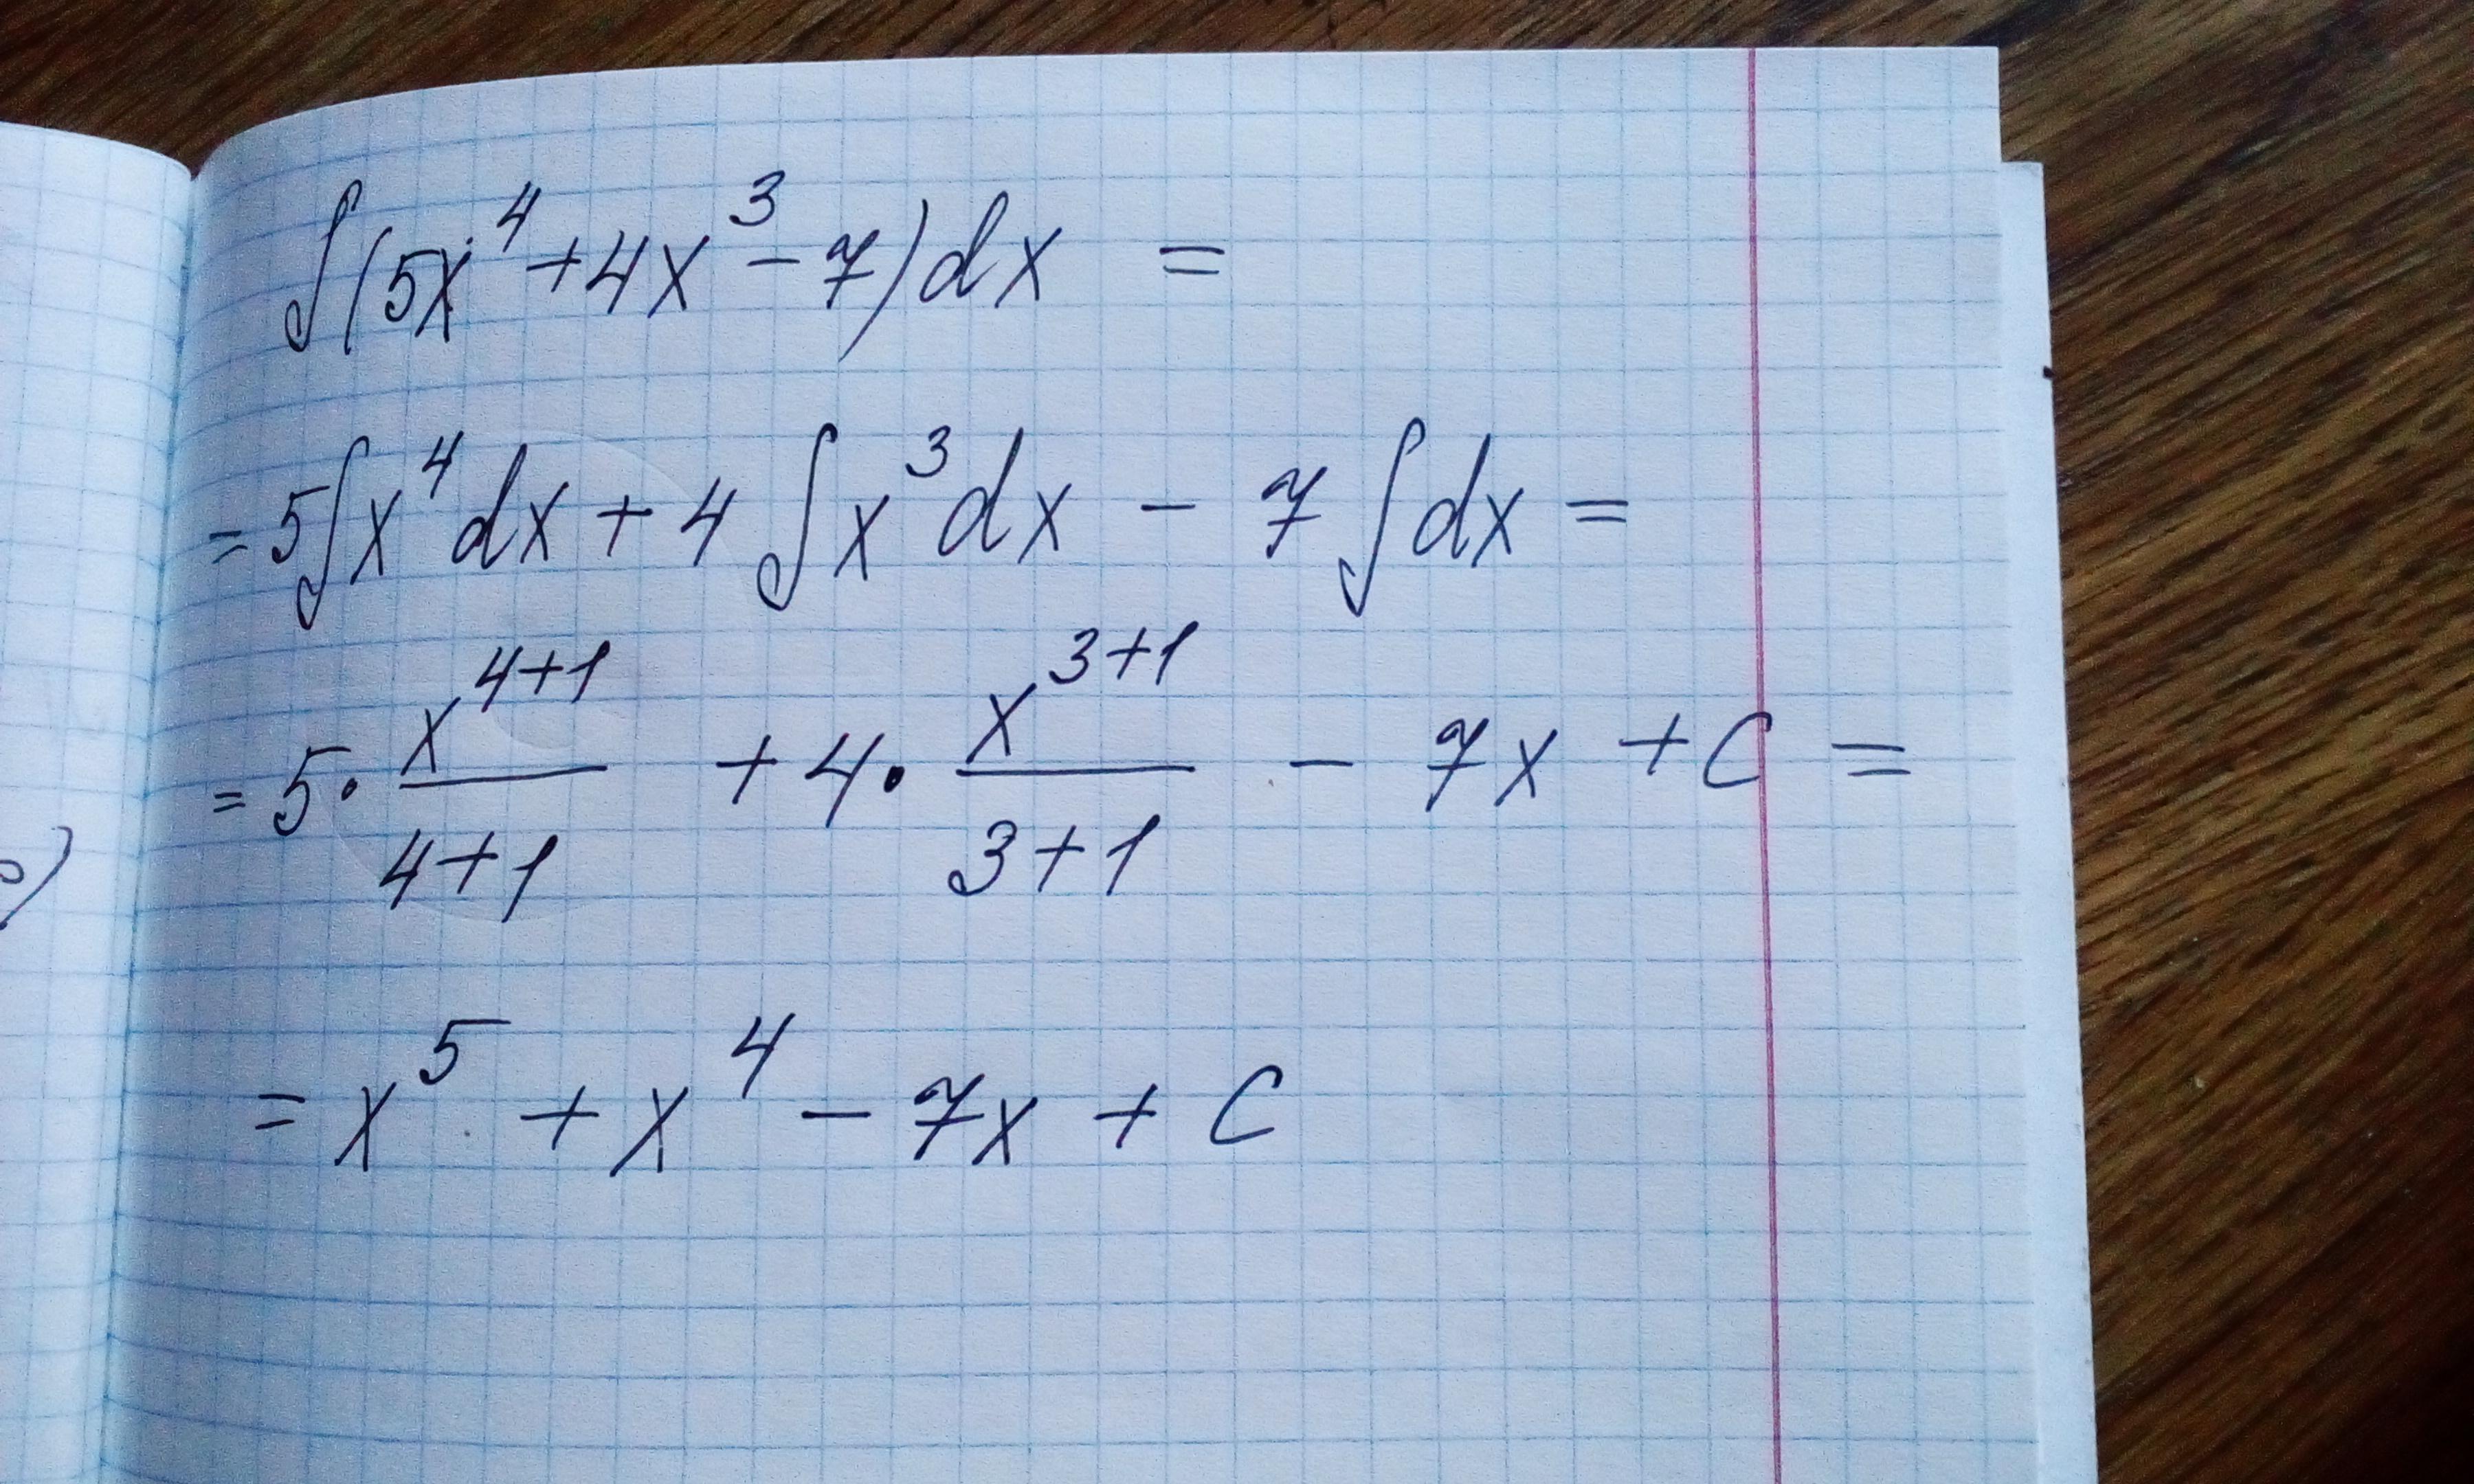 ∫(5x⁴+4x³-7)dx =
= 5∫x⁴dx + 4∫x³dx - 7∫dx =
= 5·x⁴⁺¹/4+1 + 4·x³⁺¹/3+1 - 7x + C =
= x⁵ + x⁴ - 7x + C